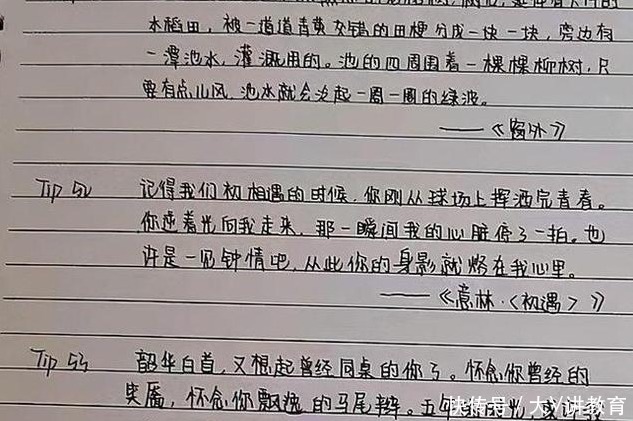 水稻田，被一道道青黄交错的田梗分成一块一块，旁边有
一潭池水，灌溉用的。池的四周围着一棵棵柳树，只
要有点儿风，池水就会泛起一周一圈的绿波。
——《窗外》
Tip 52 记得我们初相遇的时候，你刚从球场上挥洒完青春。
你逆着光向我走来，那一瞬间我的心脏停了一拍。也
许是一见钟情吧，从此你的身影就烙在我心里。
——《意林·〈初遇〉》
Tip 53 韶华白首，又想起曾经同桌的你了。怀念你曾经的
笑靥，怀念你飘逸的马尾辫。五年
快传号/大丫讲教育